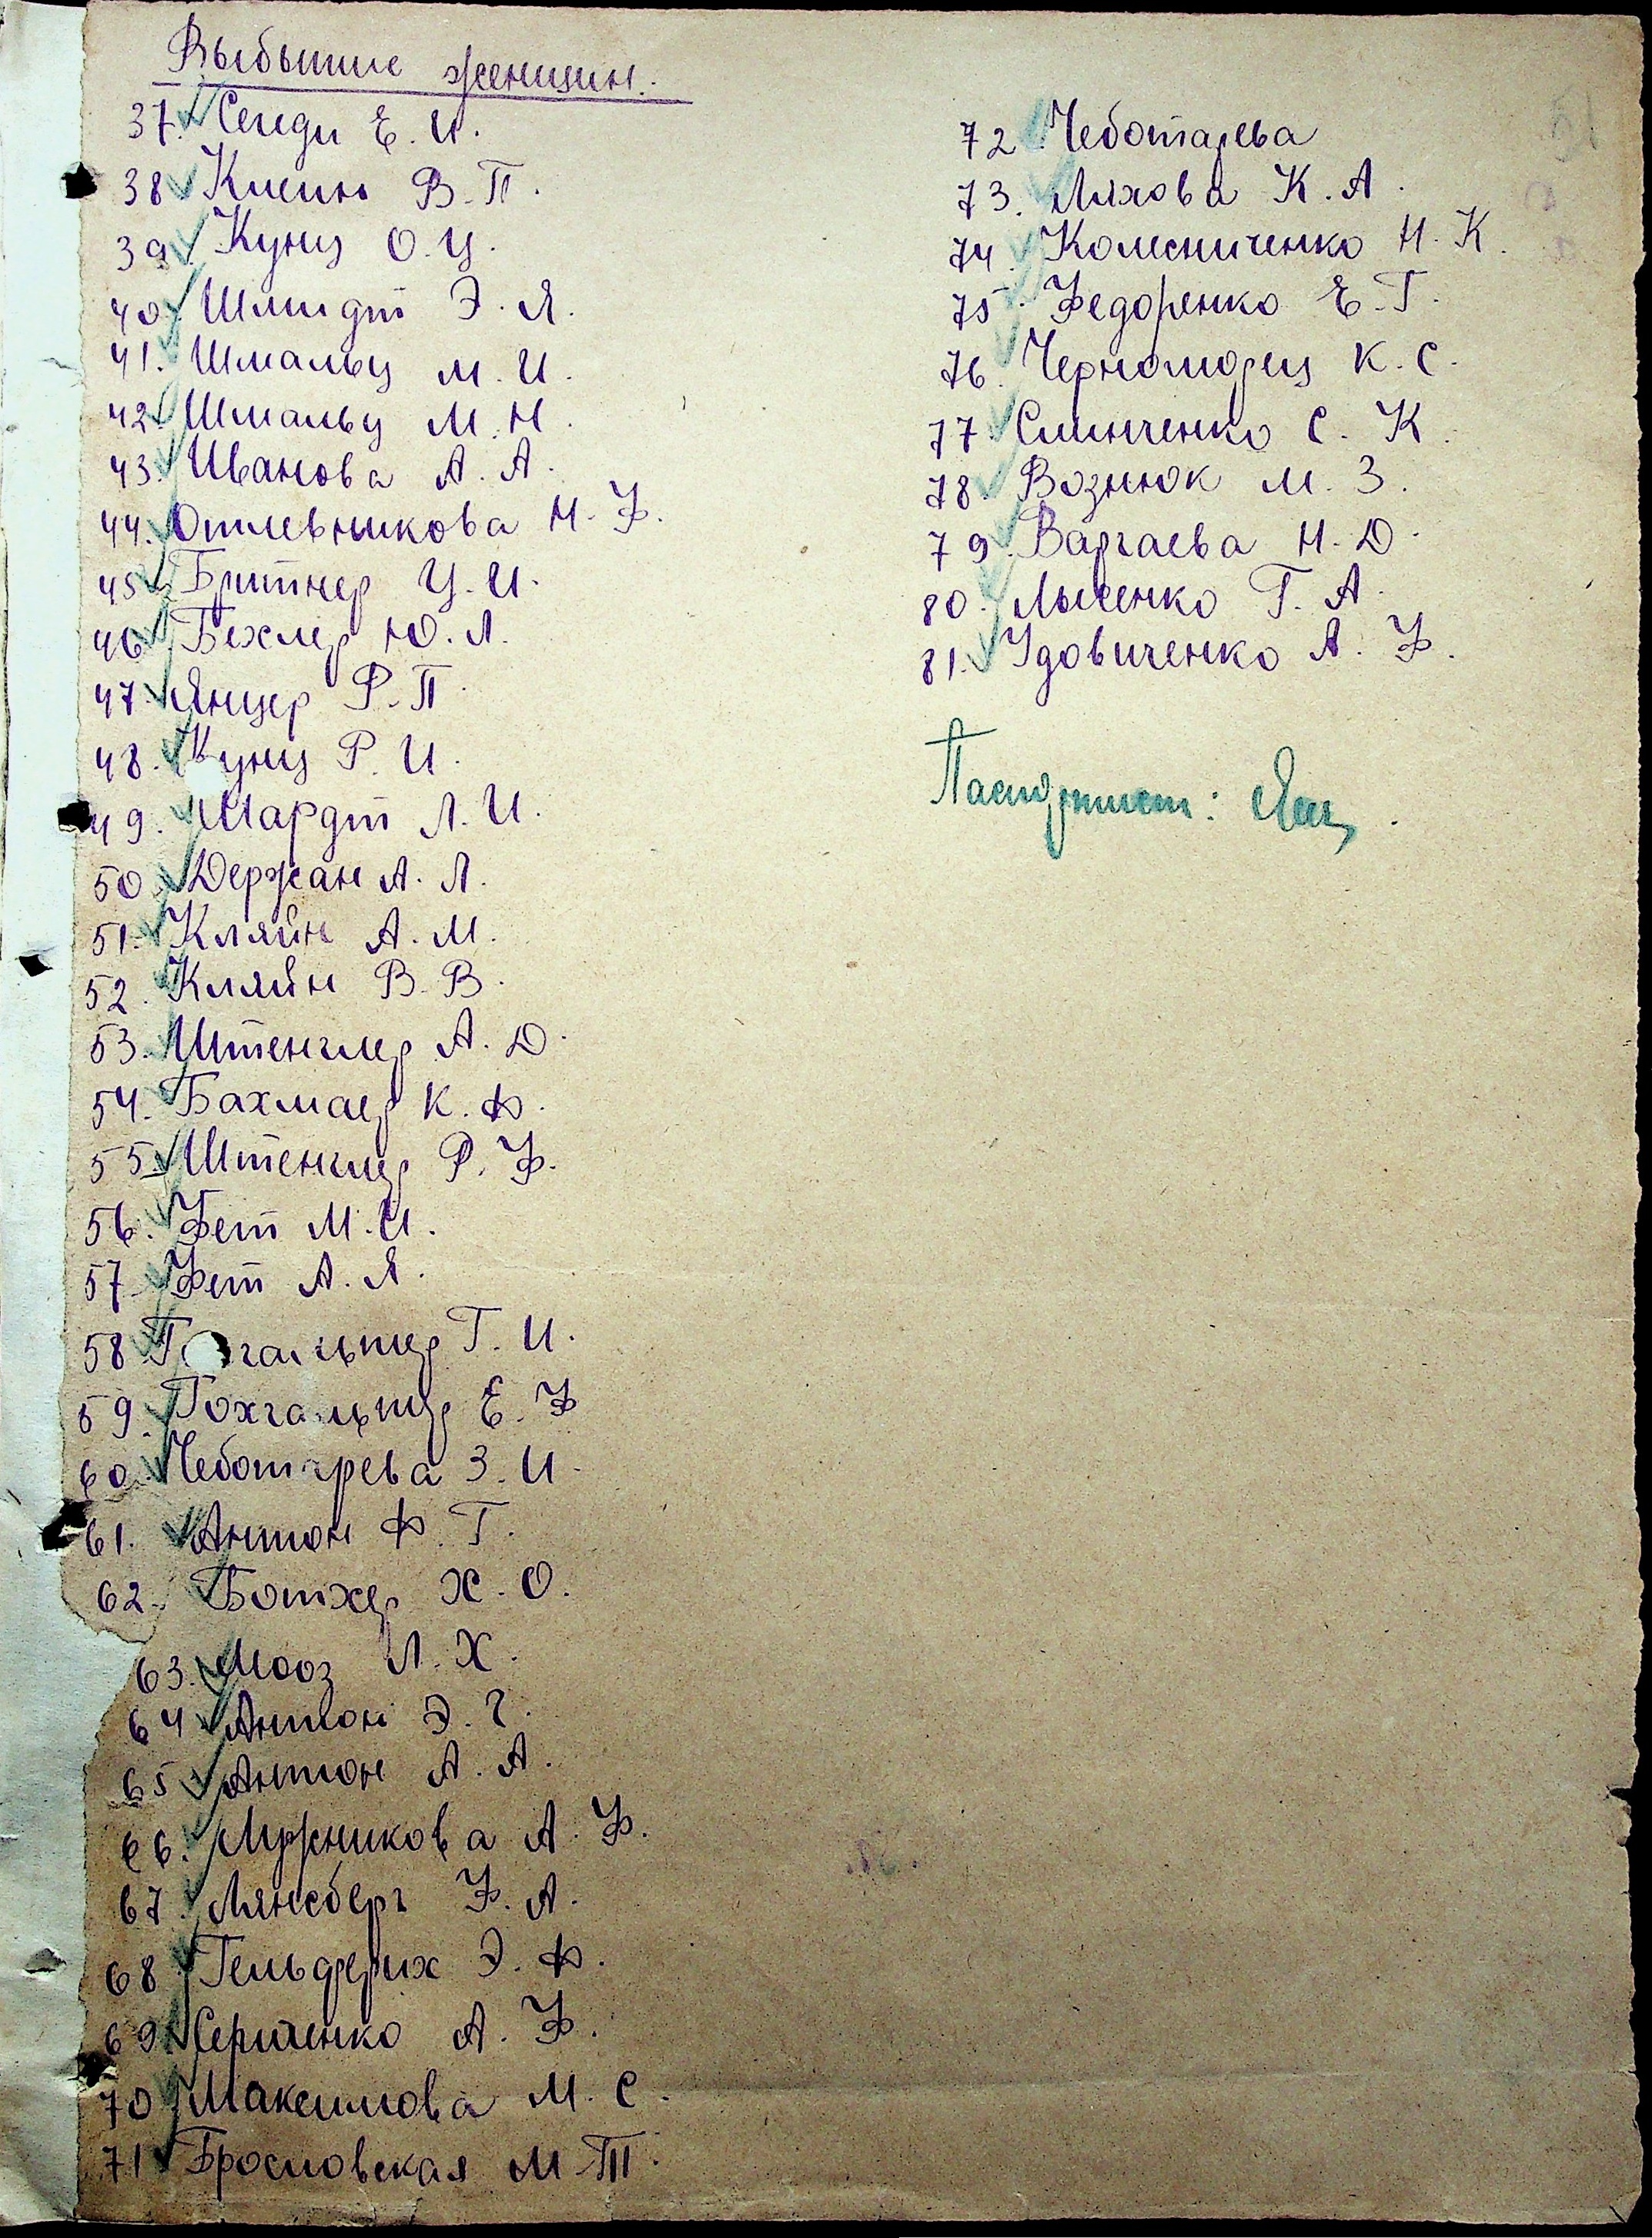 Выбывшие женщин.
37. Сенди Е. И.
38 Клеин В. П.
39. Кунц О. Ц.
40. Шмидт Э. Я.
41. Шмальц М. И.
42. Шмальц М. Н.
43. Иванова А. А.
44. Отлевникова Н. Ф.
45. Бритнер Ц. И.
46 Бехлер Ю. Л.
47. Янцер Р. П.
48. Кунц Р. И.
49. Мардт Л. И.
50. Держан А. Л.
51. Кляйн А. М.
52. Кляйн В. В.
53. Штенглер А. Д.
54. Бахмаер К. Ф.
55. Штенглер Р. Ф.
56. Фет М. И.
57 Фет А. Я.
58 Г. И.
59. Гохгальтер Е. Ф
60. Чеботарева З. И.
61. Антон Ф. Г.
62. Ботхер Х. О.
63. Мооз Л. Х.
64 Антон Э. Г.
65 Антон А. А.
66. Мужникова А. Ф.
67. Лянсберг Ф. А.
68 Гельдерих Э. Ф.
69. Сергиенко А. Ф.
70 Максимова М. С.
71 Брословская М. Т.
72 Чеботарева
73. Ляхова К. А.
74. Колесниченко Н. К.
75. Федоренко Е. Г.
76. Черноморец К. С.
77. Слинченко С. К.
78. Вознюк М. З.
79. Варгаева Н. Д.
80. Лысенко Г. А.
81. Удовиченко А. Ф.
Паспортист: Янц.